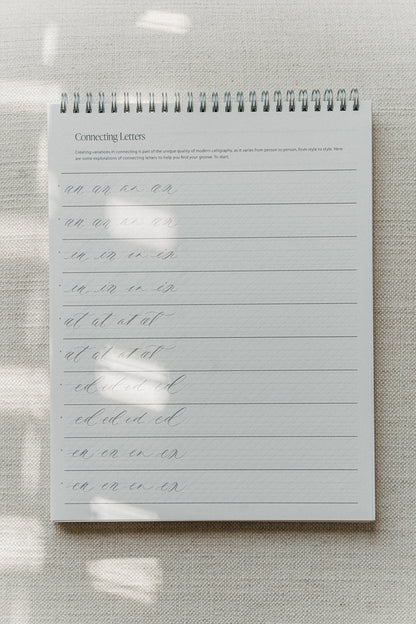 Connecting Letters
Creating variations in connecting is part of the unique quality of modern calligraphy, as it varies from person to person, from style to style. Here
are some explorations of connecting letters to help you find your groove. To start,
an an an an
an an an an
in in in in
in in in in
at at at at
at at at at
ed ed ed ed
ed ed ed ed
en en en en
en en en en